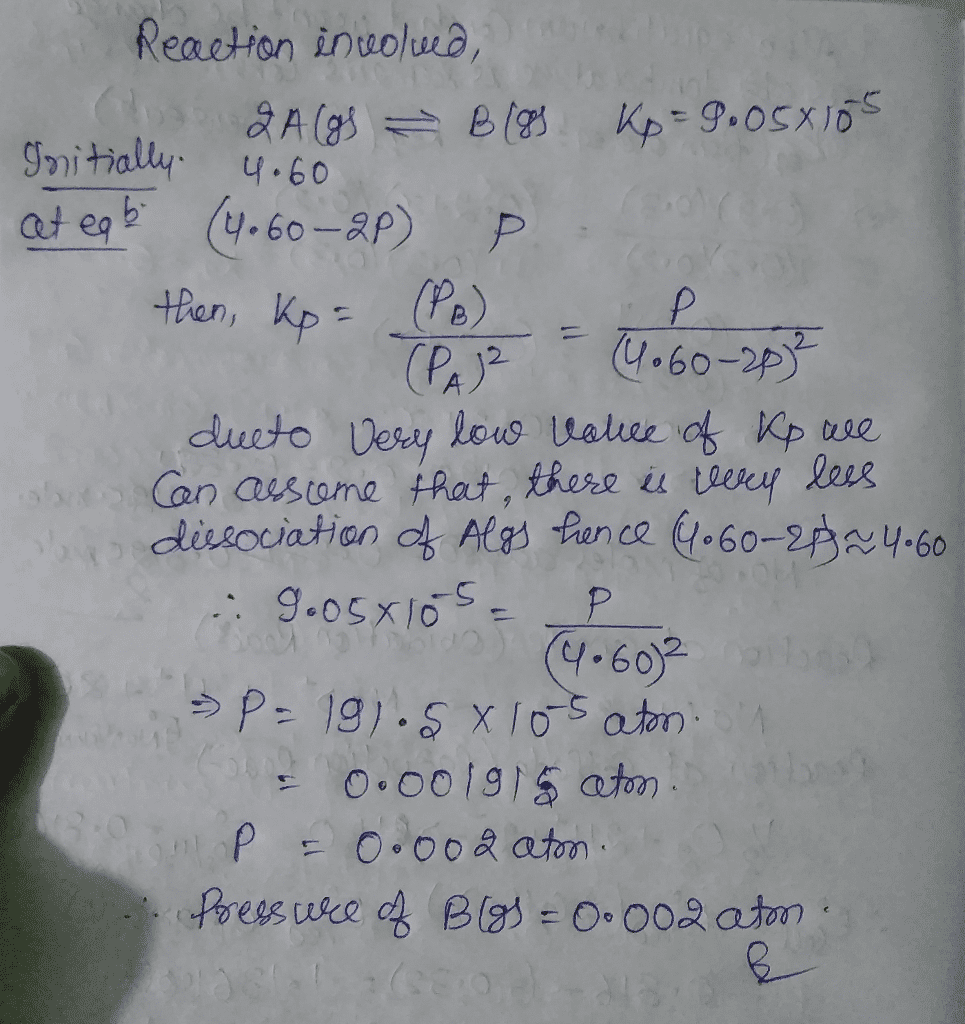 Reaction involved,
2A(g) ⇌ B(g) Kp = 9.05×10⁻⁵
Initially. 4.60
at eqb. (4.60−2P) P
then, Kp = (PB) / (PA)² = P / (4.60−2P)²
due to very low value of Kp we
Can assume that, there is very less
dissociation of A(g) hence (4.60−2P) ≈ 4.60
∴ 9.05×10⁻⁵ = P / (4.60)²
⇒ P = 191.5 × 10⁻⁵ atm.
= 0.001915 atm.
P = 0.002 atm.
∴ Pressure of B(g) = 0.002 atm.